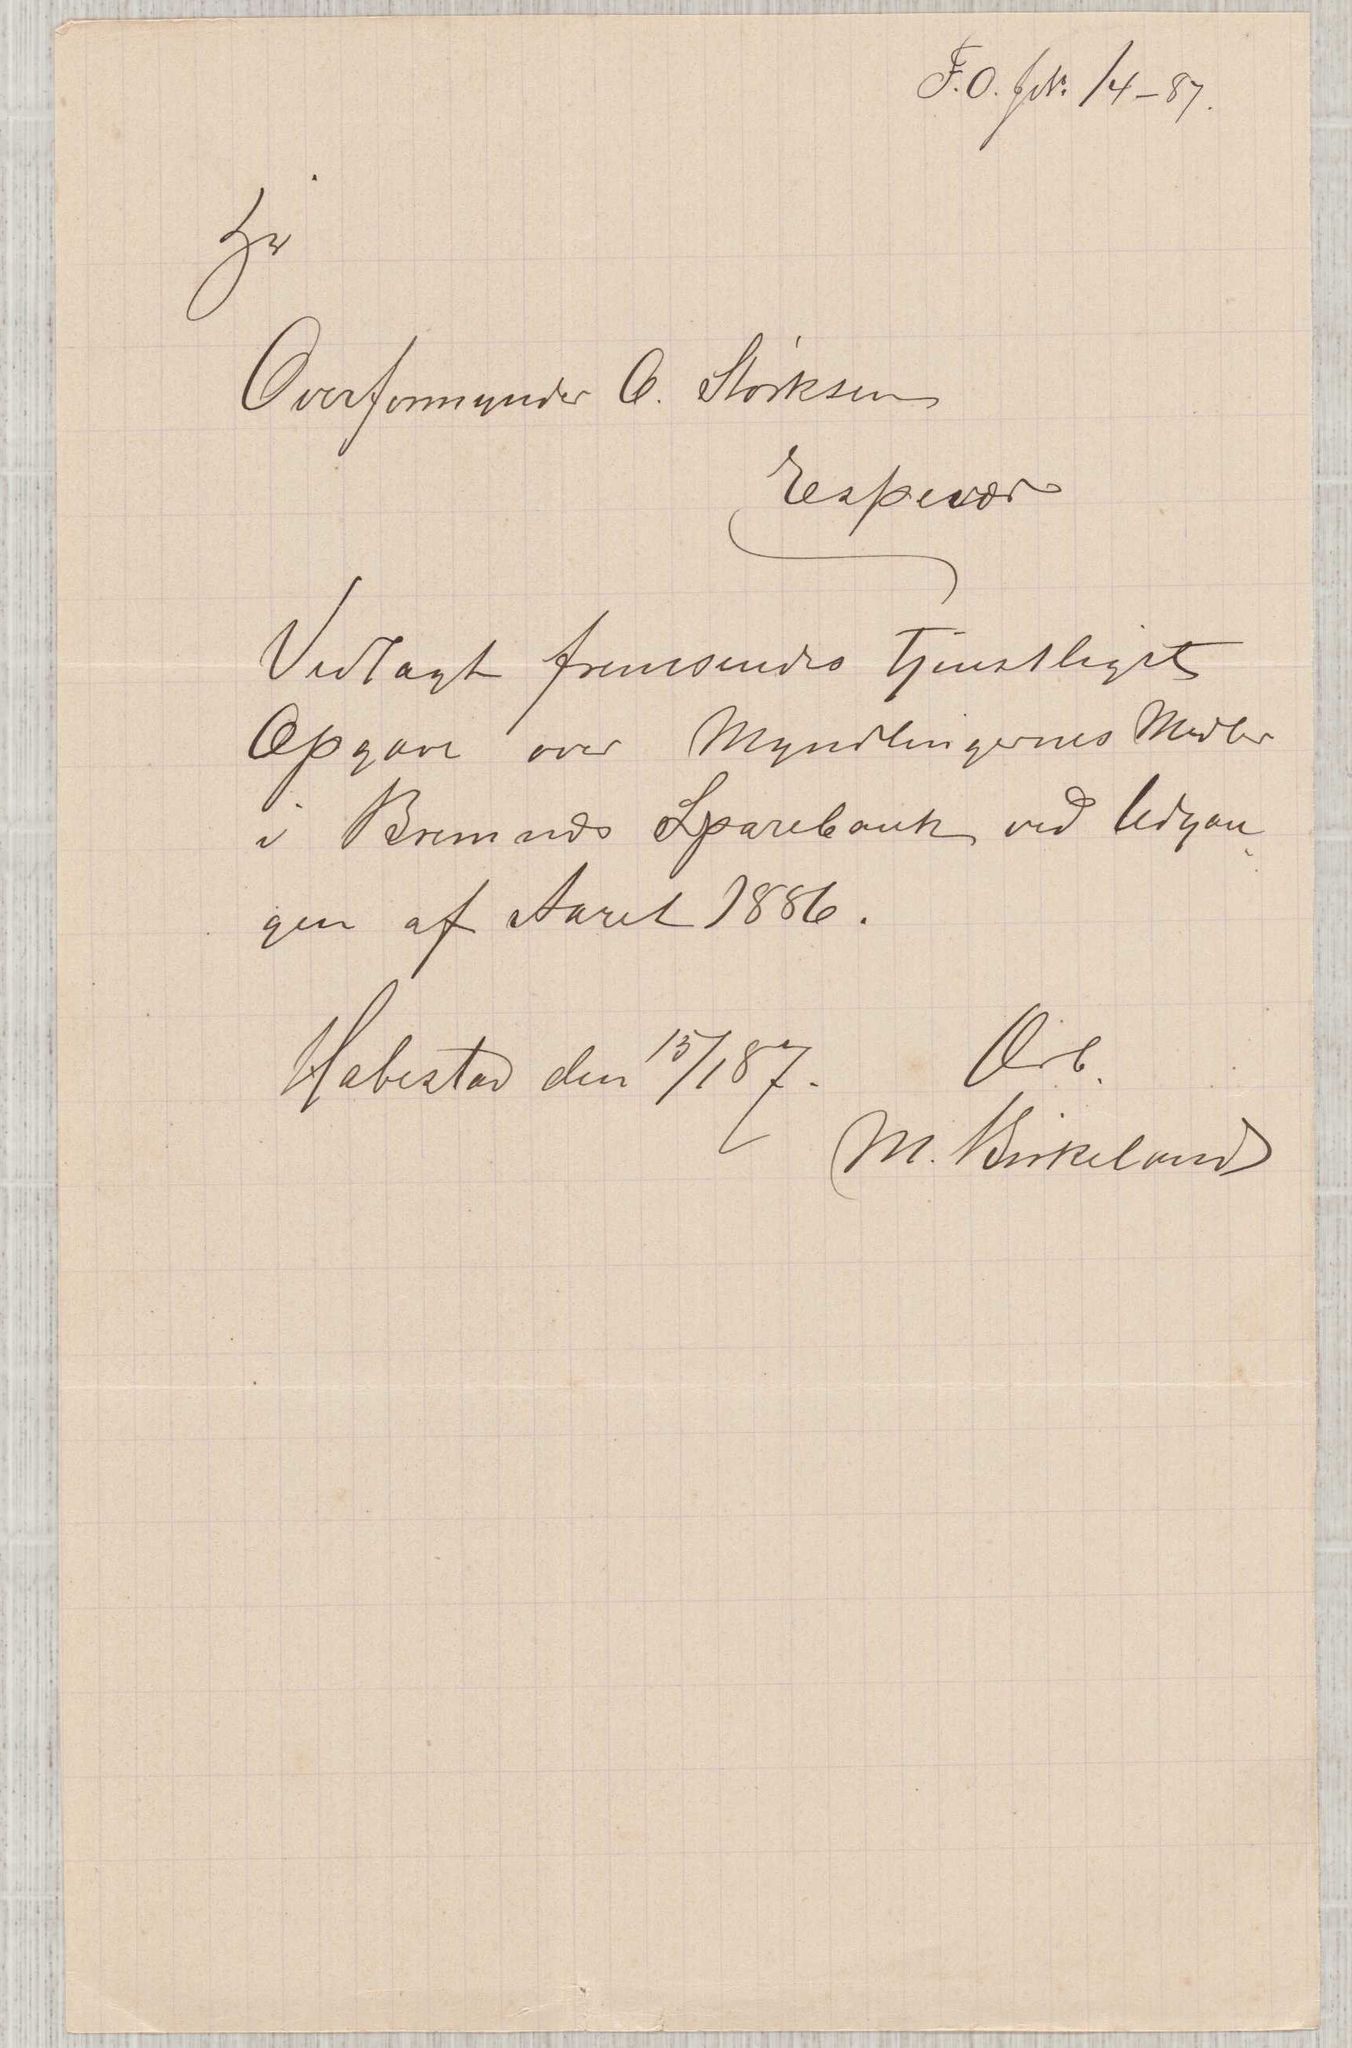 F.O. J.N. 14-87.
Hr
Overformynder O. Størksen
Espevær
Vedlagt fremsendes tjenstligst
Opgave over Myndlingernes Midler
i Bremnæs Sparebank ved Udgan-
gen af Aaret 1886.
Habestad den 15/1 87.
Ærb.
M. Birkeland